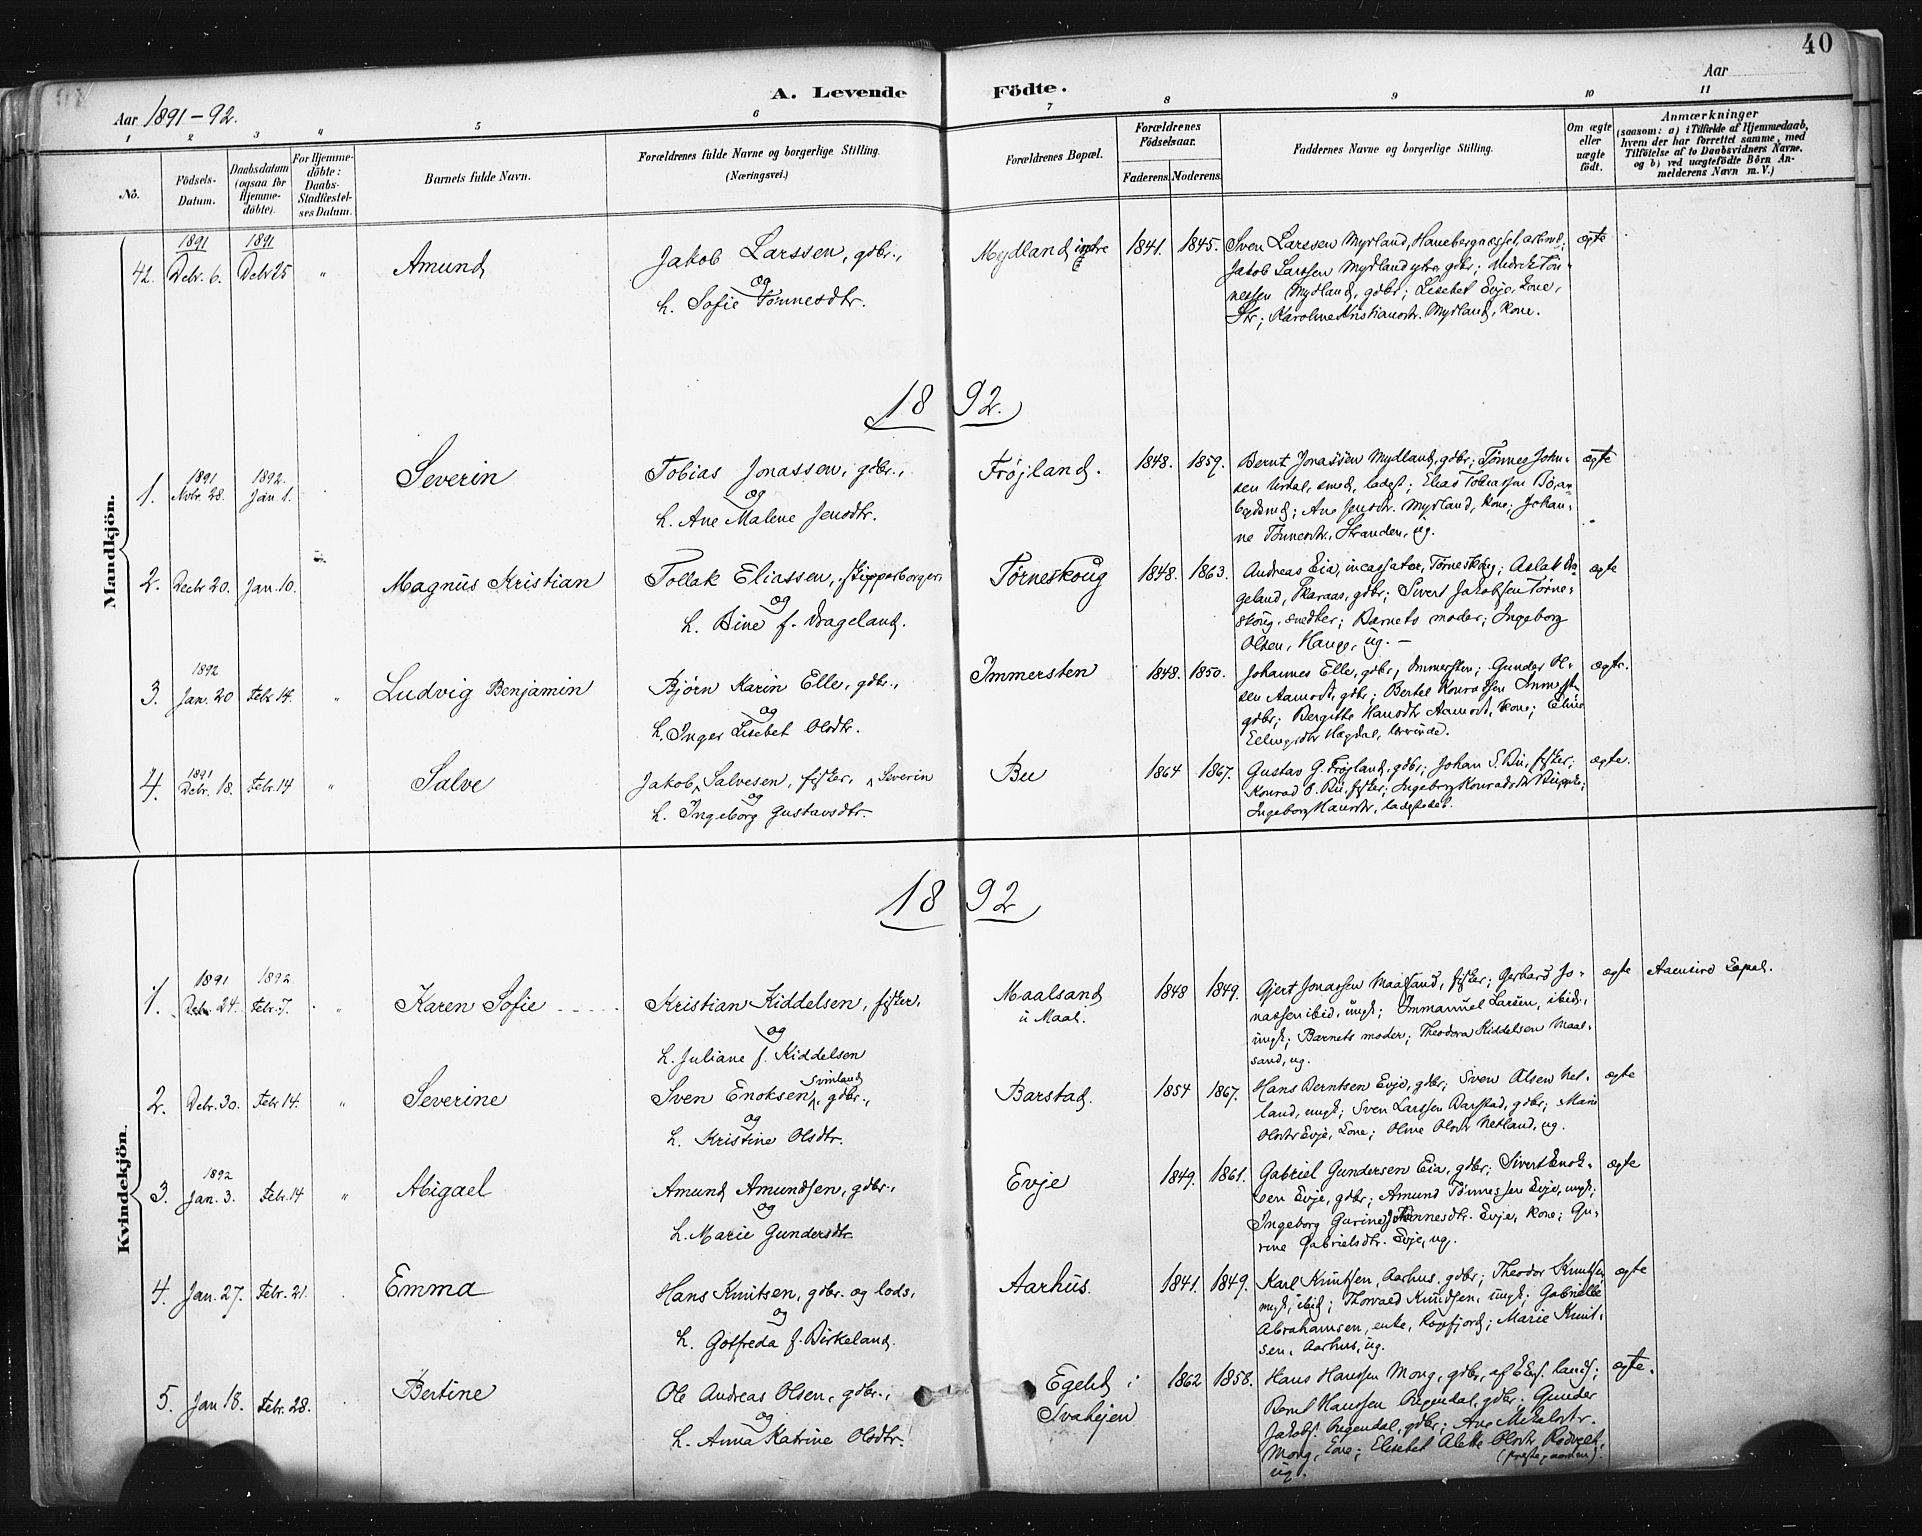 40
A. Levende Födte.
Aar 1891-92.
Aar
1 2 3 " 5 6 7 8 9 10 11
No.
Födsels-Datum.
Daabsdatum (ogsaa for Hjemme-döbte).
For Hjemme-döbte: Daabs-Stadfæstel-ses Datum.
Barnets fulde Navn.
Forældrenes fulde Navne og borgerlige Stilling.
(Næringsvei.)
Forældrenes Bopæl.
Forældrenes Födselsaar.
Faderens. Moderens.
Faddernes Navne og borgerlige Stilling.
Om ægte eller uægte født.
Anmærkninger
(saasom: a) i Tilfælde af Hjemmedaab, hvem der har forrettet samme, med Tilföielse af to Daabsvidners Navne, og b) ved uægtefödte Börn An-melderens Navn m. V.)
Mandkjön.
42. 1891 Debr. 6. 1891 Debr 25 " Amund
Jakob Larssen, gdbr.,
og
h. Sofie Tønnesdtr.
Mydland indre 1841. 1845.
Sven Larssen Mydland, Hanebergnesset, arbmd.
Jakob Larssen Mydland ytre, gdbr; Tøn-
nessen Mydland, gdbr; Lisebet Evje, kone,
Str; Karoline Kristiansdtr. Mydland, kone.
ægte
1892.
1. 1891 Novbr. 28. 1892. Jan. 1. Severin
Tobias Jonassen, gdbr.,
og
h. Ane Malene Jensdtr.
Frøjland. 1848. 1859.
Bernt Jonassen Mydland, gdbr; Tønnes John-
sen Urdal, smed, ladest; Elias Tobiassen
Ane Jensdtr. Mydland, kone; Johan-
ne Tønnesdtr. Stranden, ug.
ægte
2. Decbr 20. Jan. 10. Magnus Kristian
Tollak Eliassen, skipperborger,
og
h. Bine f. Drageland.
Tørneskoug 1848. 1863.
Andreas Eia, incassator, Tørneskoug; Aslak Dra-
geland, Skaraas, gdbr; Sivert Jakobsen Tørne-
skoug, snedker; Barnets moder; Ingeborg
Olsen, Hauge, ug. —
ægte
3. 1892 Jan. 20 Febr 14. " Ludvig Benjamin
Bjørn Karin Elle, gdbr.,
og
h. Inger Lisebet Olsdtr.
Immersten 1848. 1850.
Johannes Elle, gdbr, Immersten; Gunder Ol-
sen Aamodt, gdbr; Bertel Konradsen Immerst.
gdbr; Bergitte Hansdtr Aamodt, kone; Eline
Ellingsdtr Høgdal,
ægte.
4. 1891 Debr. 18. Febr. 14 " Salve
Jakob Salvesen, fisker, Severin
og
h. Ingeborg Gustavsdtr.
Bu 1864 1867.
Gustav G. Frøjland, gdbr; Johan S. Bu, fisker;
Konrad S. Bu, fisker; Ingeborg Konradsdtr Bu,
Ingeborg Hansdtr, ladestedet.
ægte.
Kvindekjön.
1892
1. 1891 Debr. 24. 1892. Febr. 7. " Karen Sofie
Kristian Kiddelsen, fisker,
og
h. Juliane f. Kiddelsen
Maalsand
i Maal. 1848 1849.
Gjert Jonassen Maalsand, fisker; Gerhard Jo-
nassen ibid, ungk; Immanuel Larsen, ibid,
ungk; Barnets moder; Theodora Kiddelsen Maal-
sand, ug.
ægte Aaensire Capel.
2. Debr. 30. Febr 14. " Severine
Sven Enoksen Svinland, gdbr.,
og
h. Kristine Olsdtr.
Barstad. 1854 1867.
Hans Berntsen Evje, gdbr; Sven Olsen Net-
land, ungk; Sven Larssen Barstad, gdbr; Marie
Olsdtr Evje, kone; Oline Olsdtr Netland, ug.
ægte
3. 1892 Jan. 3. Febr. 14 " Abigael
Amund Amundsen, gdbr.,
og
h. Marie Gundersdtr.
Evje 1849. 1861.
Gabriel Gundersen Eia, gdbr; Sivert Enok-
sen Evje, gdbr; Amund Tønnessen Evje, ungk;
Ingeborg Gurine Tønnesdtr. Evje, kone; Gu-
rine Gabrielsdtr. Evje, ug.
ægte
4. Jan. 27. Febr. 21. Emma
Hans Knutsen, gdbr. og lods,
og
h. Gotfreda f. Birkeland.
Aarhus. 1841. 1849.
Karl Knutsen, Aarhus, gdbr; Theodor Knutsen
ungk, ibid; Thorvald Knudsen, ungk; Gabrielle
Abrahamsen, enke, Rægfjord; Marie Knut-
sen, Aarhus, ug.
ægte
5. Jan 18. Febr. 28. Bertine
Ole Andreas Olsen, gdbr.,
og
h. Anna Katrine Olsdtr.
Egeld i
Svahejen 1862 1858.
Hans Hanssen Mong, gdbr, af lands;
Bernt Hanssen Augendal, gdbr; Gunder
Jakobs. Augendal, gdbr; Ane Mikalsdtr.
Mong, kone; Elisebet Alette Olsdtr Rødvelt,
ug.
ægte.